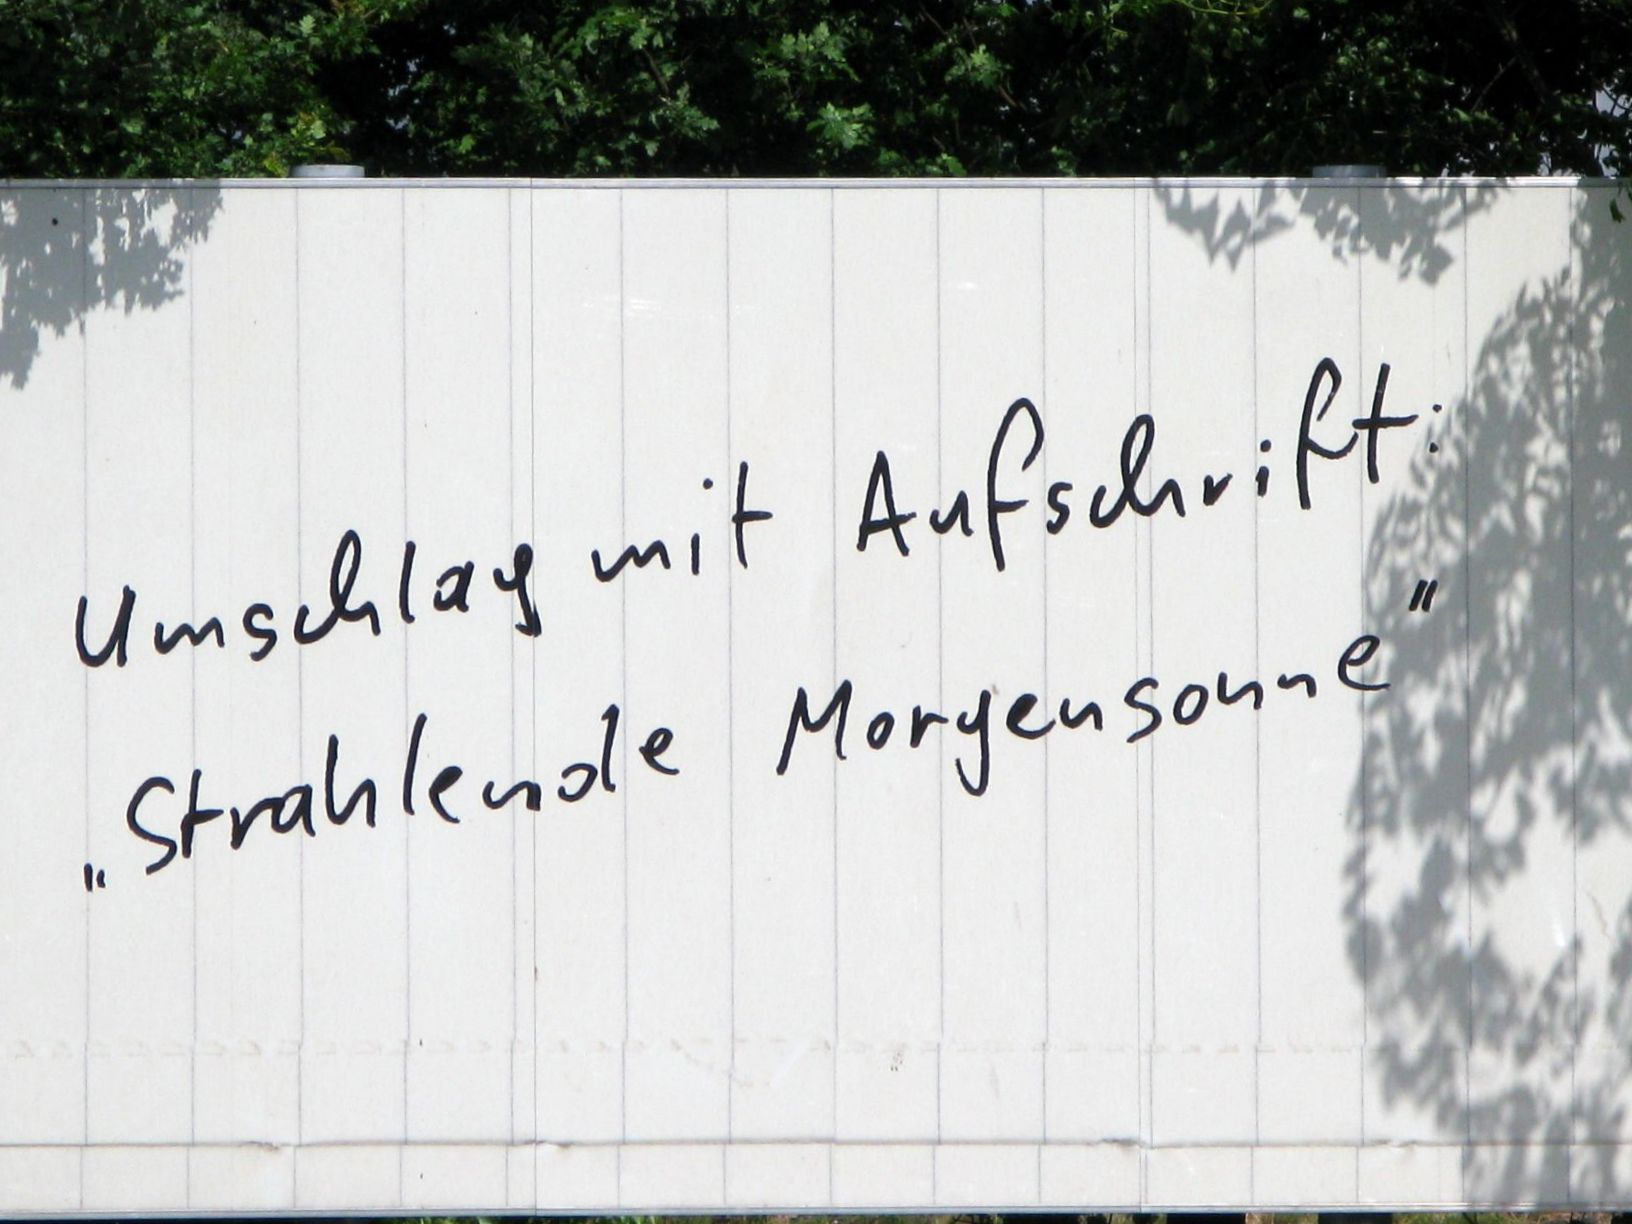 Umschlag mit Aufschrift:
„Strahlende Morgensonne"